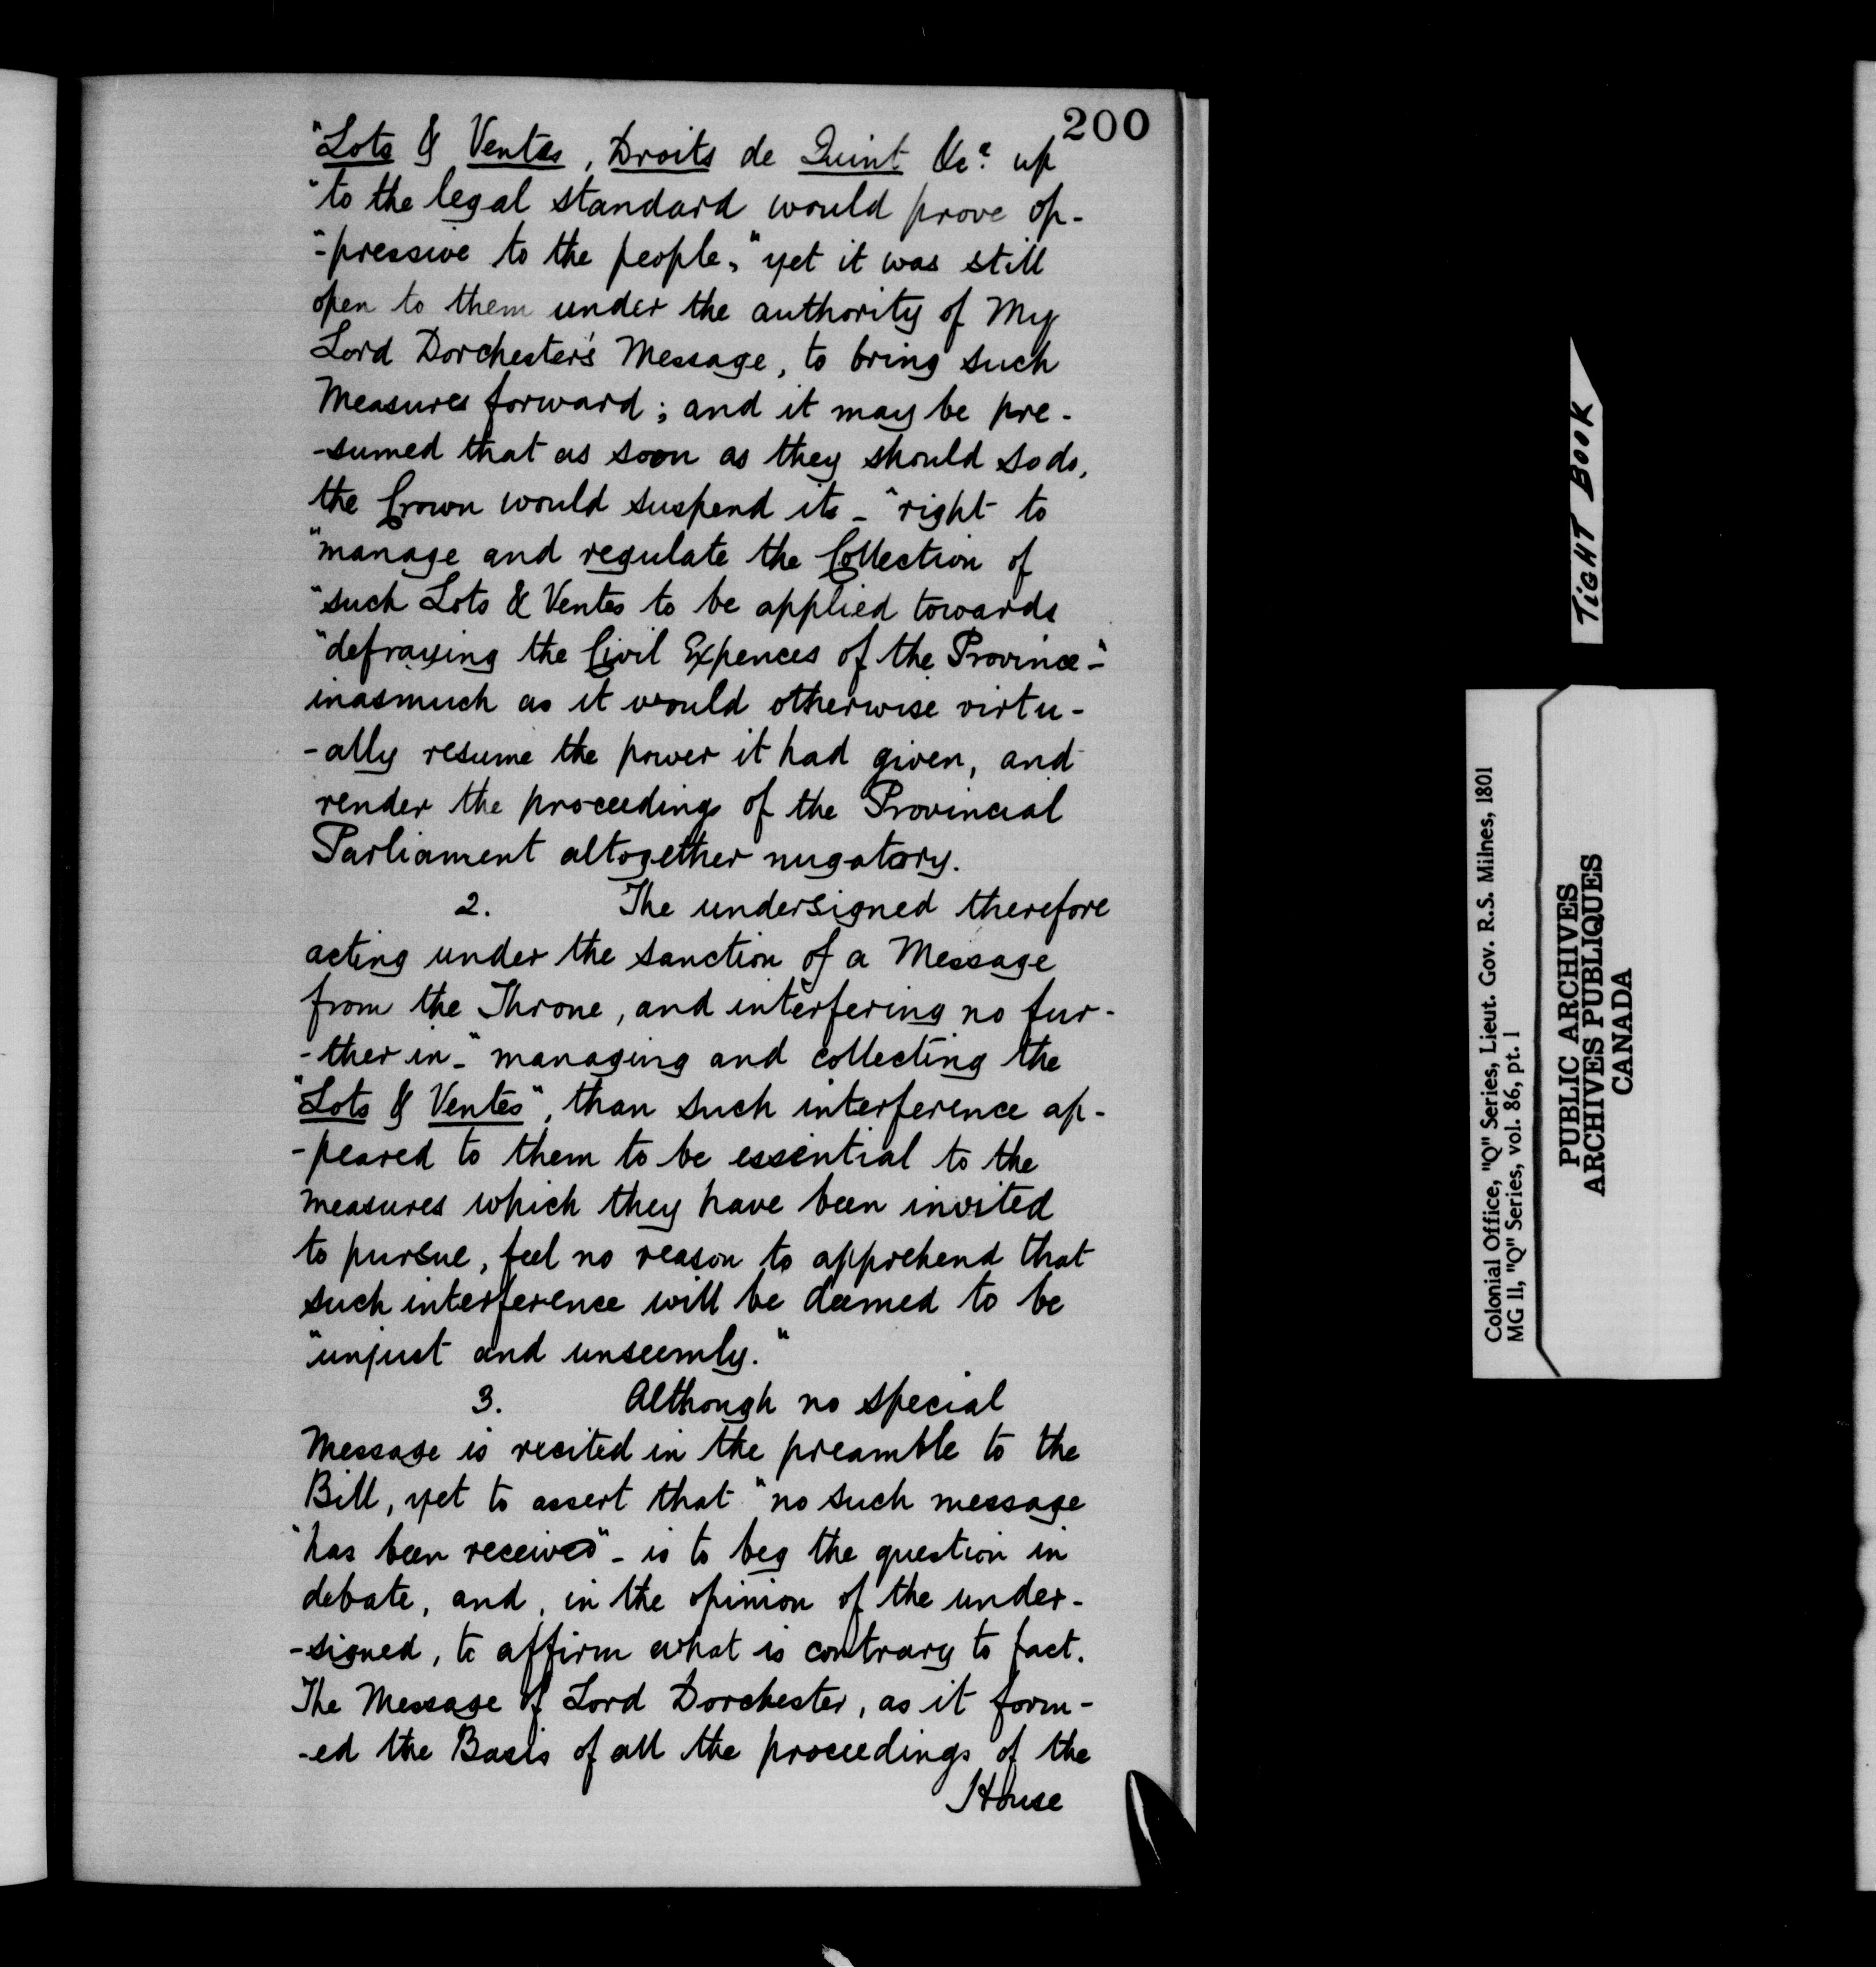 200
"Lots & Ventes, Droits de Quint &c.ª up
"to the legal standard would prove op-
"-pressive to the people," yet it was still
open to them under the authority of My
Lord Dorchester's Message, to bring such
Measures forward; and it may be pre-
-sumed that as soon as they should so do,
the Crown would suspend its - "right to
"manage and regulate the Collection of
"such Lots & Ventes to be applied towards
"defraying the Civil Expences of the Province" -
inasmuch as it would otherwise virtu-
-ally resume the power it had given, and
render the proceedings of the Provincial
Parliament altogether nugatory.
2. The undersigned therefore
acting under the sanction of a Message
from the Throne, and interfering no fur-
-ther in - "managing and collecting the
"Lots & Ventes", than such interference ap-
-peared to them to be essential to the
measures which they have been invited
to pursue, feel no reason to apprehend that
such interference will be deemed to be
"unjust and unseemly."
3. Although no special
Message is recited in the preamble to the
Bill, yet to assert that "no such message
"has been received" - is to beg the question in
debate, and, in the opinion of the under-
-signed, to affirm what is contrary to fact.
The Message of Lord Dorchester, as it form-
-ed the Basis of all the proceedings of the
House
TIGHT BOOK
Colonial Office, "Q" Series, Lieut. Gov. R.S. Milnes, 1801
MG 11, "Q" Series, vol. 86, pt. 1
PUBLIC ARCHIVES
ARCHIVES PUBLIQUES
CANADA